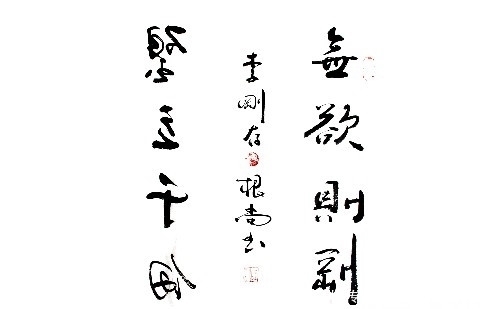 無欲則剛
李剛存根尚书
壁立千仞